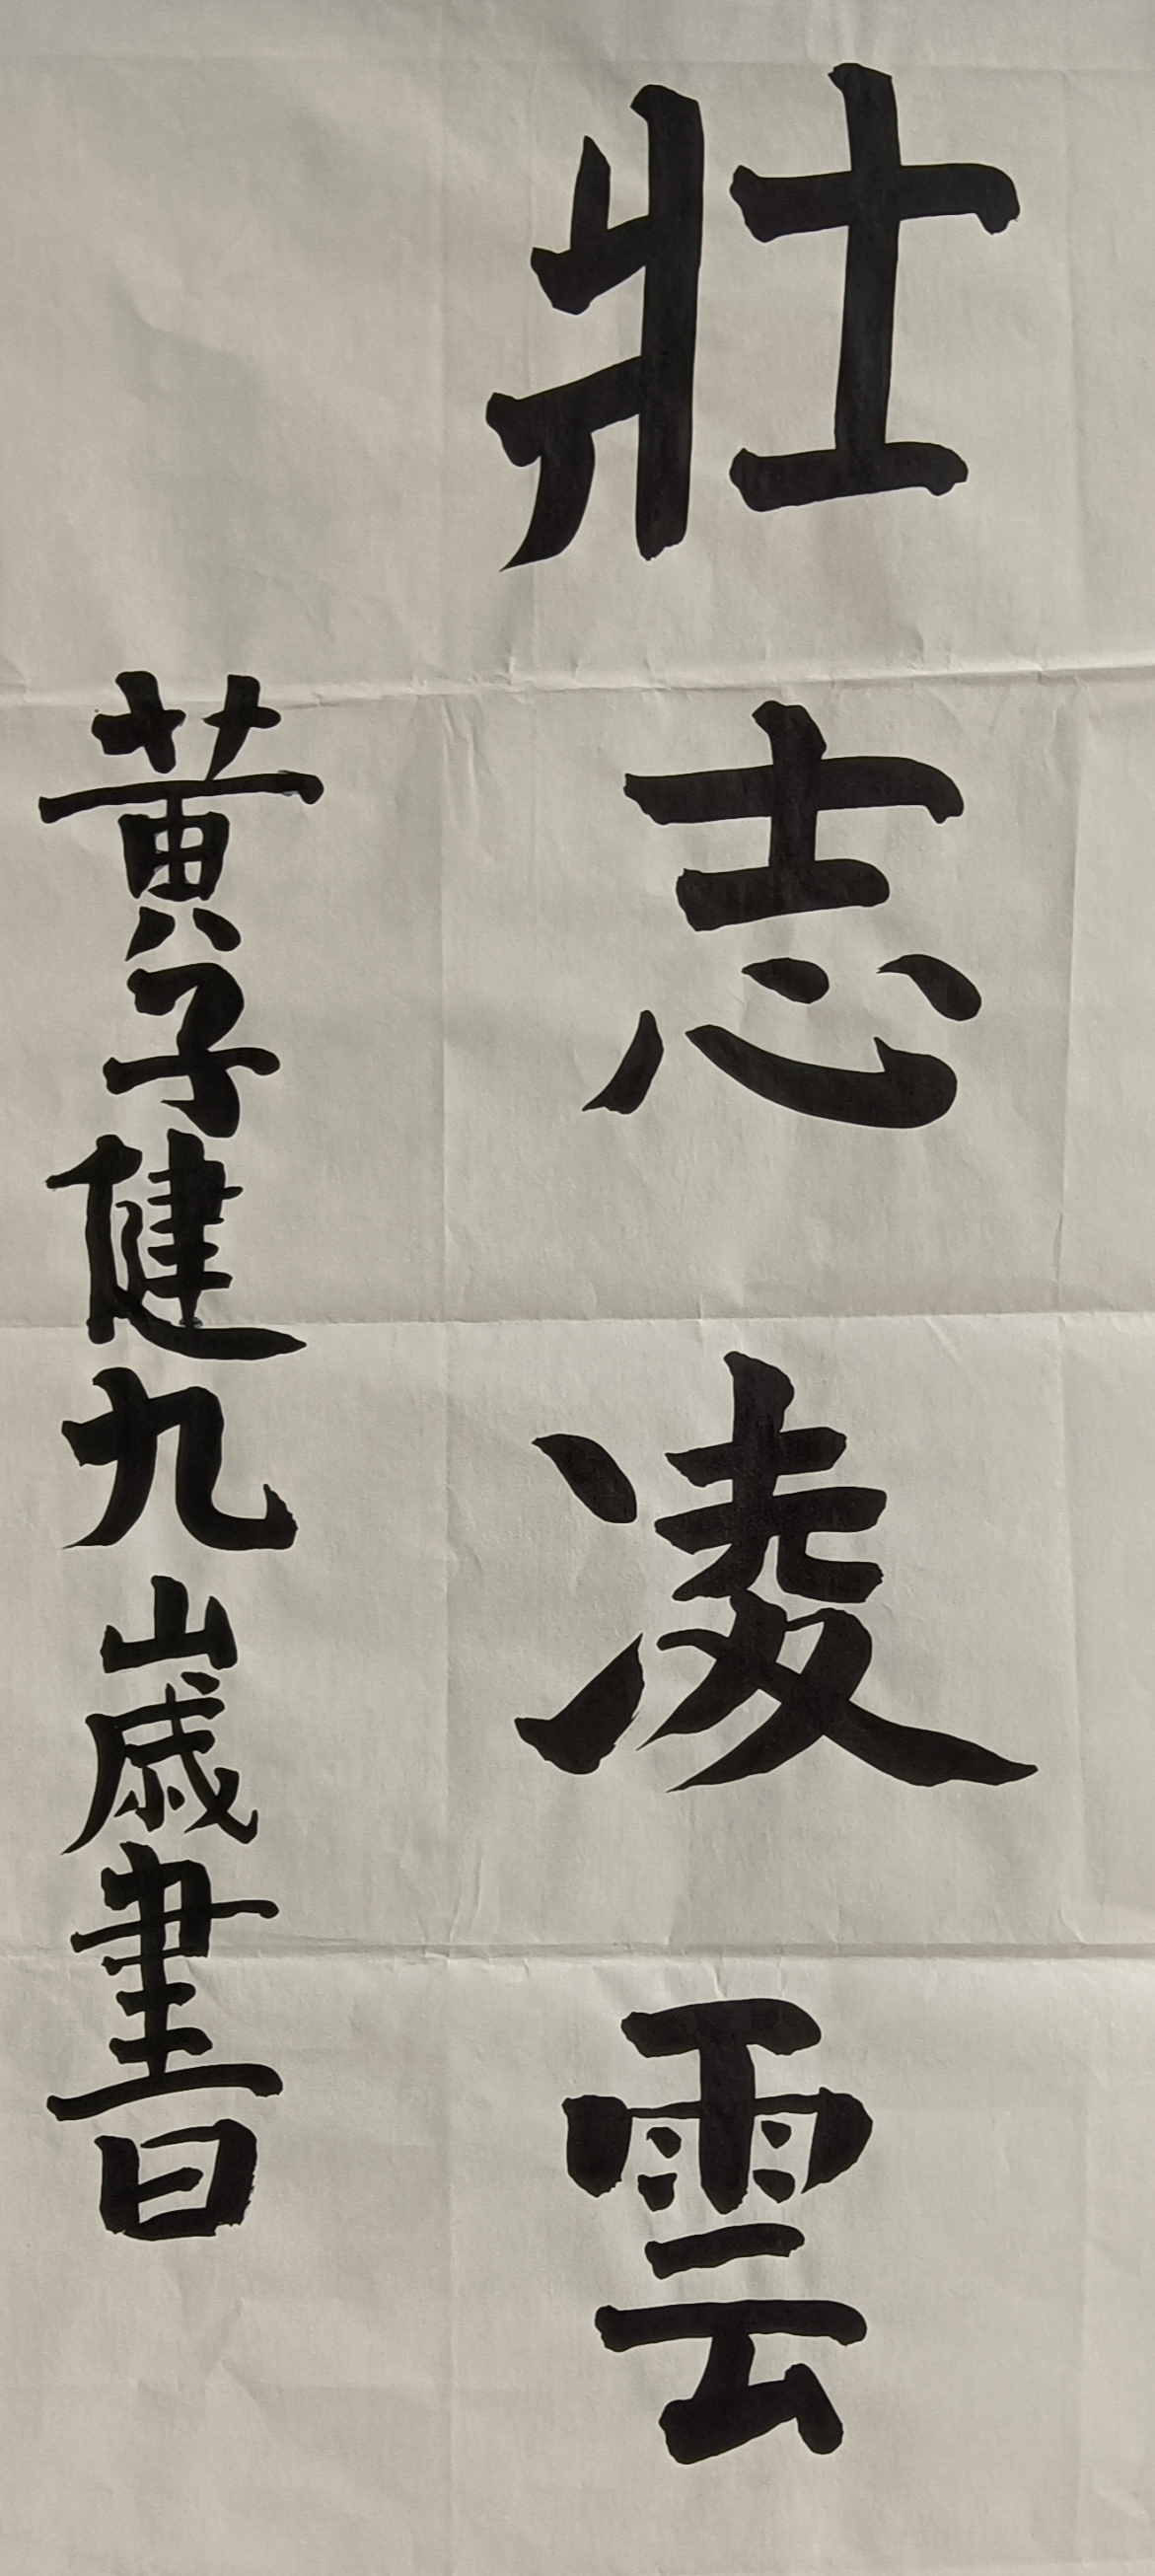 壯志凌雲
黃子健九歲書